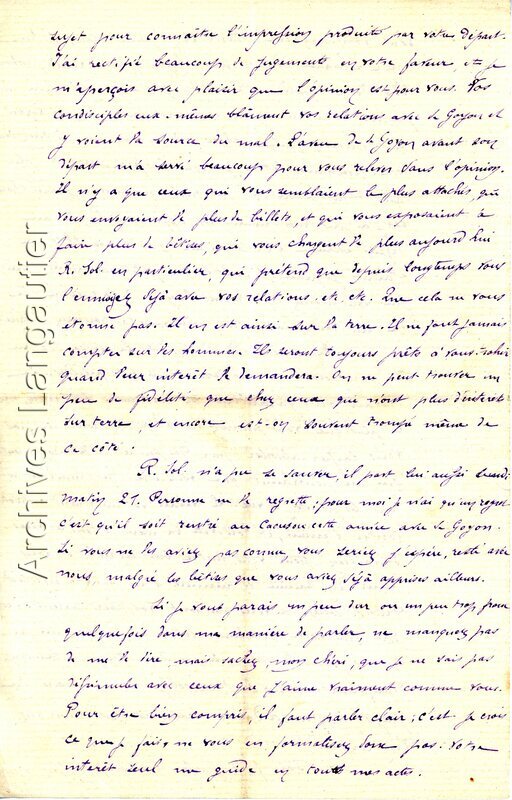 sujet pour connaître l'impression produite par votre départ.
J'ai rectifié beaucoup de jugements en votre faveur, et je
m'aperçois avec plaisir que l'opinion est pour vous. Vos
condisciples eux-mêmes blâment vos relations avec de Goyon et
y voient la source du mal. L'aveu de de Goyon avant son
départ m'a servi beaucoup pour vous relever dans l'opinion.
Il n'y a que ceux qui vous semblaient le plus attachés, qui
vous envoyaient le plus de billets, et qui vous exposaient à
faire plus de bêtises, qui vous chargent le plus aujourd'hui
R. Sol. en particulier, qui prétend que depuis longtemps vous
l'ennuyez déjà avec vos relations. etc. etc. Que cela ne vous
étonne pas. Il en est ainsi sur la terre. Il ne faut jamais
compter sur les hommes. Ils seront toujours prêts à vous trahir
quand leur intérêt le demandera. On ne peut trouver un
peu de fidélité que chez ceux qui n'ont plus d'intérêt
sur terre, et encore est-on souvent trompé même de
ce côté.
R. Sol. n'a pu se sauver, il part lui aussi lundi
matin 21. Personne ne le regrette. pour moi je n'ai qu'un regret
c'est qu'il soit rentré au cette année avec de Goyon.
Si vous ne les aviez pas connus, vous seriez j'espère, resté avec
nous, malgré les bêtises que vous aviez déjà apprises ailleurs.
Si je vous parais un peu dur ou un peu trop franc
quelquefois dans ma manière de parler, ne manquez pas
de me le dire, mais sachez, mon chéri, que je ne sais pas
dissimuler avec ceux que j'aime vraiment comme vous.
Pour être bien compris, il faut parler clair; c'est je crois
ce que je fais, ne vous en formalisez donc pas. Votre
intérêt seul me guide en tous mes actes.
Archives Langautier